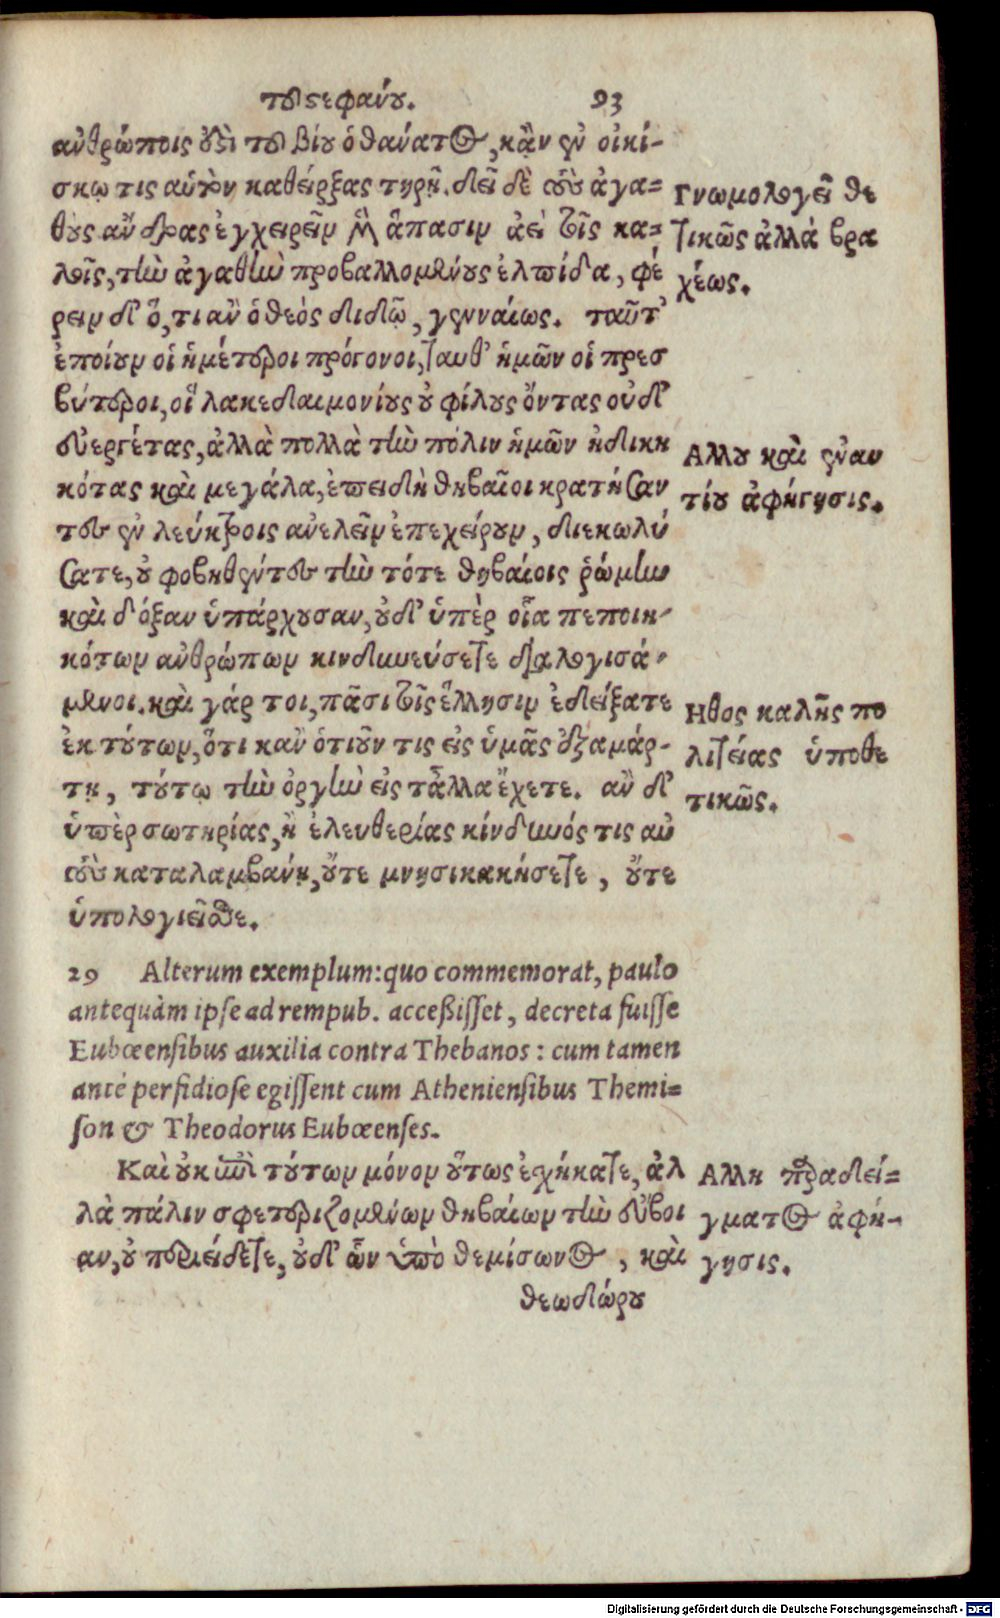 τοῦ στεφάνου. 93
ἀνθρώποις ἐστὶ τοῦ βίου ὁ θάνατος, κἂν ἐν οἰκί-
σκῳ τις αὑτὸν καθείρξας τηρῇ. δεῖ δὲ τοὺς ἀγα=
θοὺς ἄνδρας ἐγχειρεῖν μὲν ἅπασιν ἀεὶ τοῖς κα=
λοῖς, τὴν ἀγαθὴν προβαλλομένους ἐλπίδα, φέ
ρειν δ' ὅ, τι ἂν ὁ θεὸς διδῷ, γενναίως. ταῦτ'
ἐποίουν οἱ ἡμέτεροι πρόγονοι, ταυθ' ἡμῶν οἱ πρεσ
βύτεροι, οἳ λακεδαιμονίους οὐ φίλους ὄντας οὐδ'
εὐεργέτας, ἀλλὰ πολλὰ τὴν πόλιν ἡμῶν ἠδικη
κότας καὶ μεγάλα, ἐπειδὴ θηβαῖοι κρατήσαν
τες ἐν λεύκτροις ἀνελεῖν ἐπεχείρουν, διεκωλύ
σατε, οὐ φοβηθέντες τὴν τότε θηβαίοις ῥώμην
καὶ δόξαν ὑπάρχουσαν, οὐδ' ὑπὲρ οἷα πεποιη-
κότων ἀνθρώπων κινδυνεύσετε διαλογισά-
μενοι. καὶ γάρ τοι, πᾶσι τοῖς ἕλλησιν ἐδείξατε
ἐκ τούτων, ὅτι κἂν ὁτιοῦν τις εἰς ὑμᾶς ἐξαμάρ-
τῃ, τούτῳ τὴν ὀργὴν εἰς τἆλλα ἔχετε. ἂν δ'
ὑπὲρ σωτηρίας, ἢ ἐλευθερίας κίνδυνός τις αὐ
τοὺς καταλαμβάνῃ, οὔτε μνησικακήσετε, οὔτε
ὑπολογιεῖσθε.
Γνωμολογεῖ θε
τικῶς ἀλλὰ βρα
χέως.
Αλλου καὶ ἐναν
τίου ἀφήγησις.
Ηθος καλῆς πο
λιτείας ὑποθε
τικῶς.
29 Alterum exemplum: quo commemorat, paulo
antequàm ipse ad rempub. accessisset, decreta fuisse
Eubœensibus auxilia contra Thebanos: cum tamen
antè perfidiose egissent cum Atheniensibus Themi=
son & Theodorus Eubœenses.
Καὶ οὐκ ἐπὶ τούτων μόνον οὕτως ἐχήκατε, ἀλ
λὰ πάλιν σφετεριζομένων θηβαίων τὴν εὔβοι
αν, οὐ περιείδετε, οὐδ' ὧν ὑπὸ θεμίσωνος, καὶ
Αλλη παραδεί=
γματος ἀφή-
γησις.
θεωδώρου
Digitalisierung gefördert durch die Deutsche Forschungsgemeinschaft - DFG